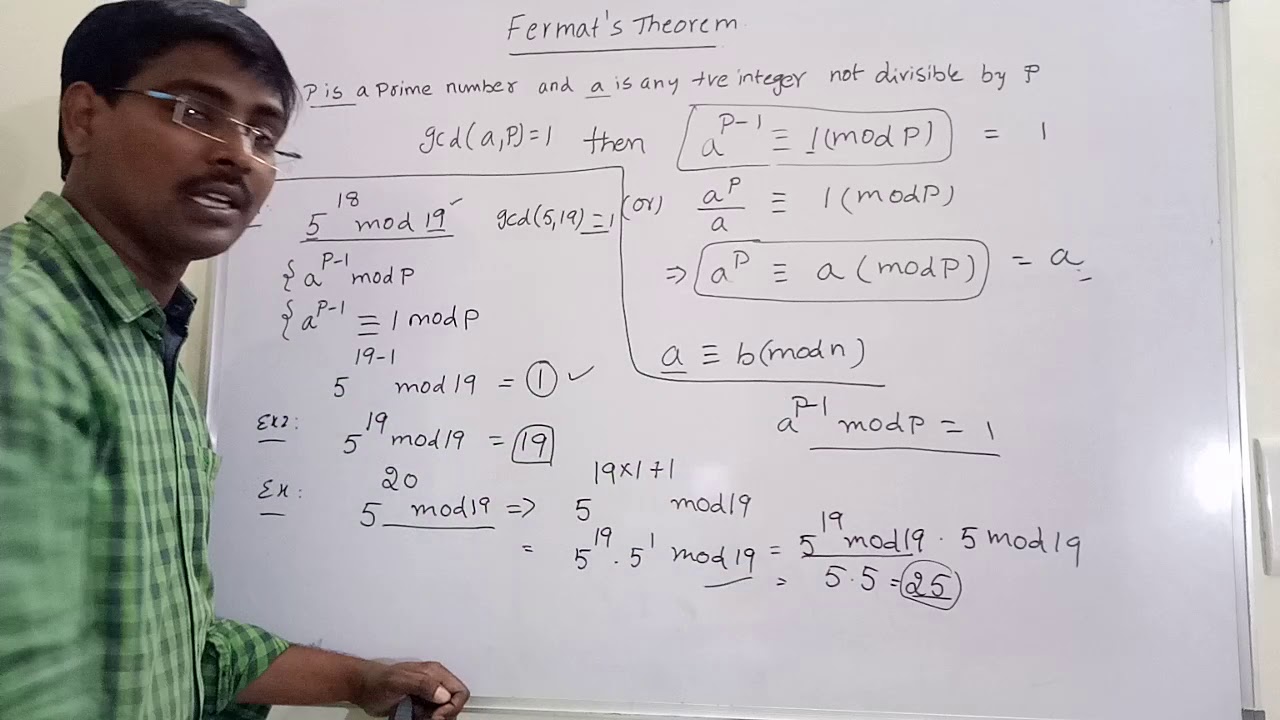 Fermat's Theorem
P is a Prime number and a is any +ve integer not divisible by P
gcd(a,P)=1 then a^{P-1} ≡ 1(mod P) = 1
5^{18} mod 19 ✓ gcd(5,19)=1
(or) a^P/a ≡ 1(mod P)
{ a^{P-1} mod P
⇒ a^P ≡ a (mod P) = a
{ a^{P-1} ≡ 1 mod P
5^{19-1} mod 19 = 1 ✓
a ≡ b(mod n)
a^{P-1} mod P = 1
Ex2: 5^{19} mod 19 = 19
Ex: 5^{20} mod 19 => 5^{19×1+1} mod 19
= 5^{19} . 5^1 mod 19 = 5^{19} mod 19 . 5 mod 19
= 5.5 = 25